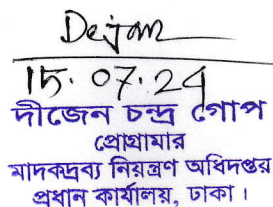 Dejan
15.07.24
দীজেন চন্দ্র গোপ
প্রোগ্রামার
মাদকদ্রব্য নিয়ন্ত্রণ অধিদপ্তর
প্রধান কার্যালয়, ঢাকা।